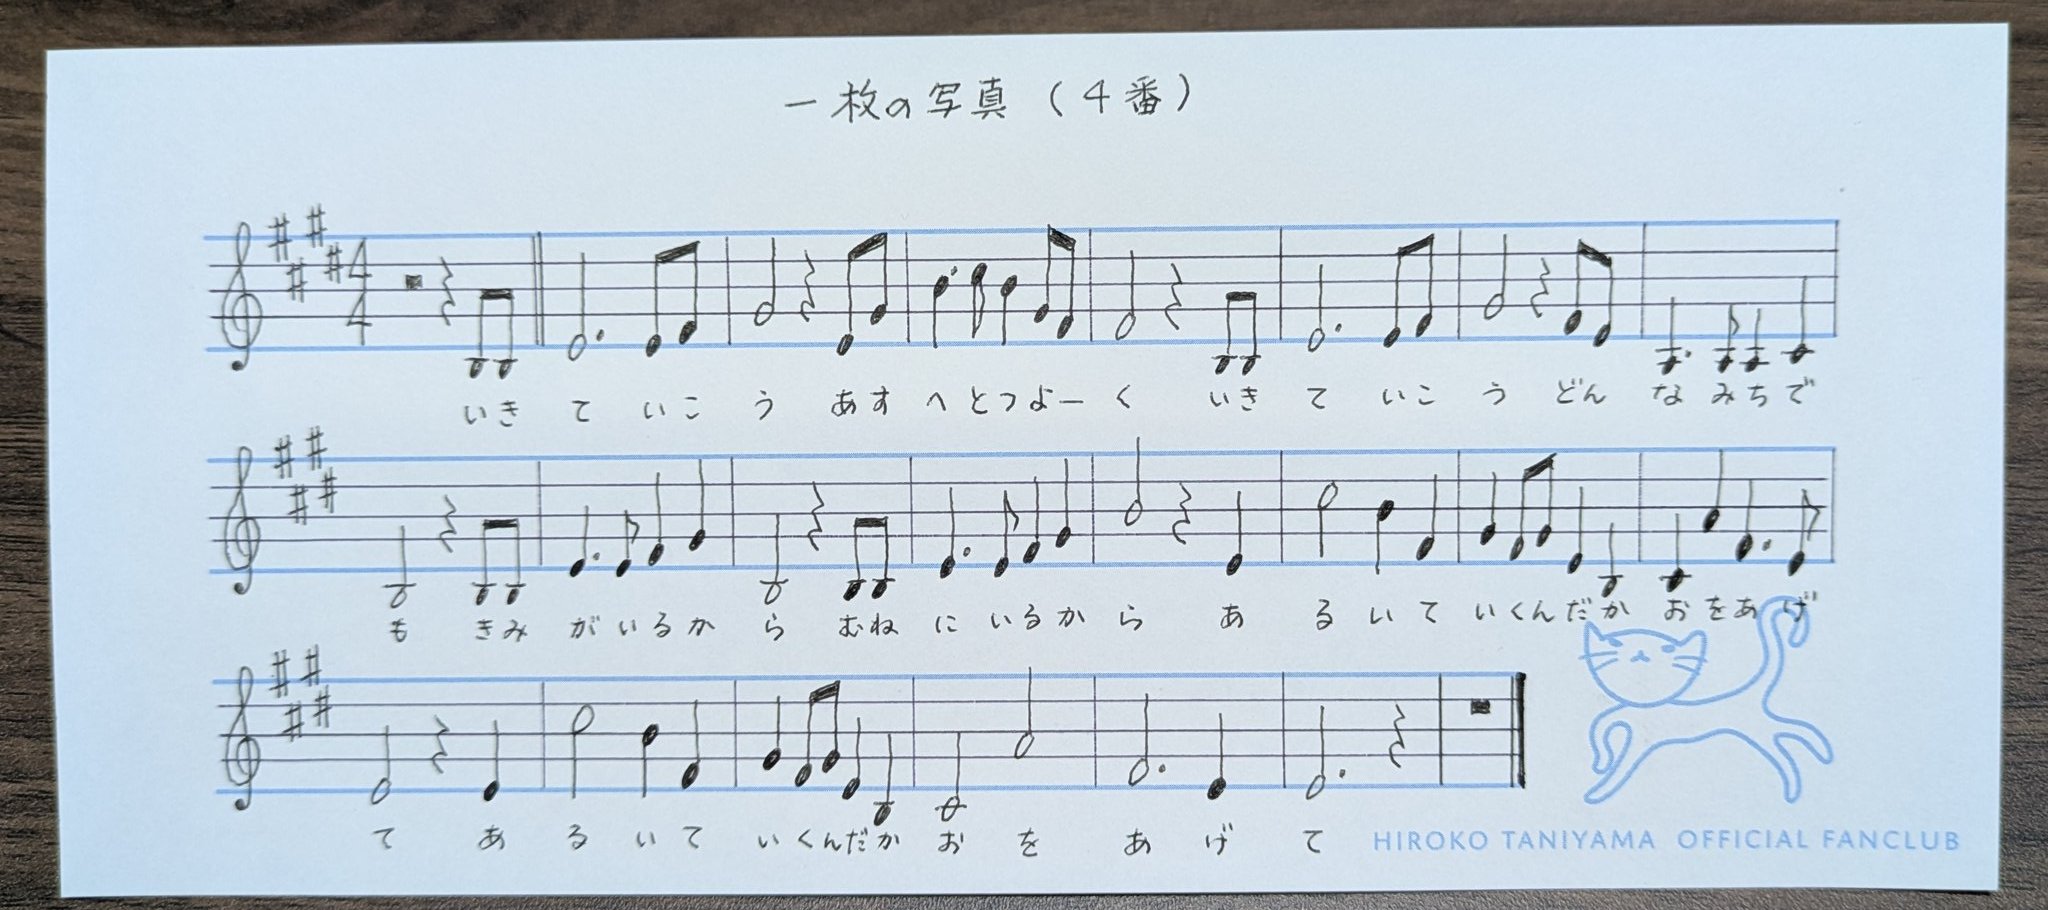 一枚の写真（4番）
4
4
いきていこう あすへとつよーく いきていこう どんなみちで
も きみがいるから むねにいるから あるいていくんだかおをあげ
て あるいていくんだかおをあげて
HIROKO TANIYAMA OFFICIAL FANCLUB